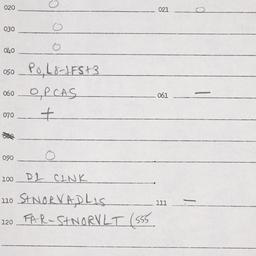 020 O 021 O
030 O
040 O
050 PO,L8-IFS+3
060 O,PCAS 061 —
070 +
090 O
100 D1 CINK
110 S+NORVA,DL1S 111 —
120 FAR-S+NORVLT (555